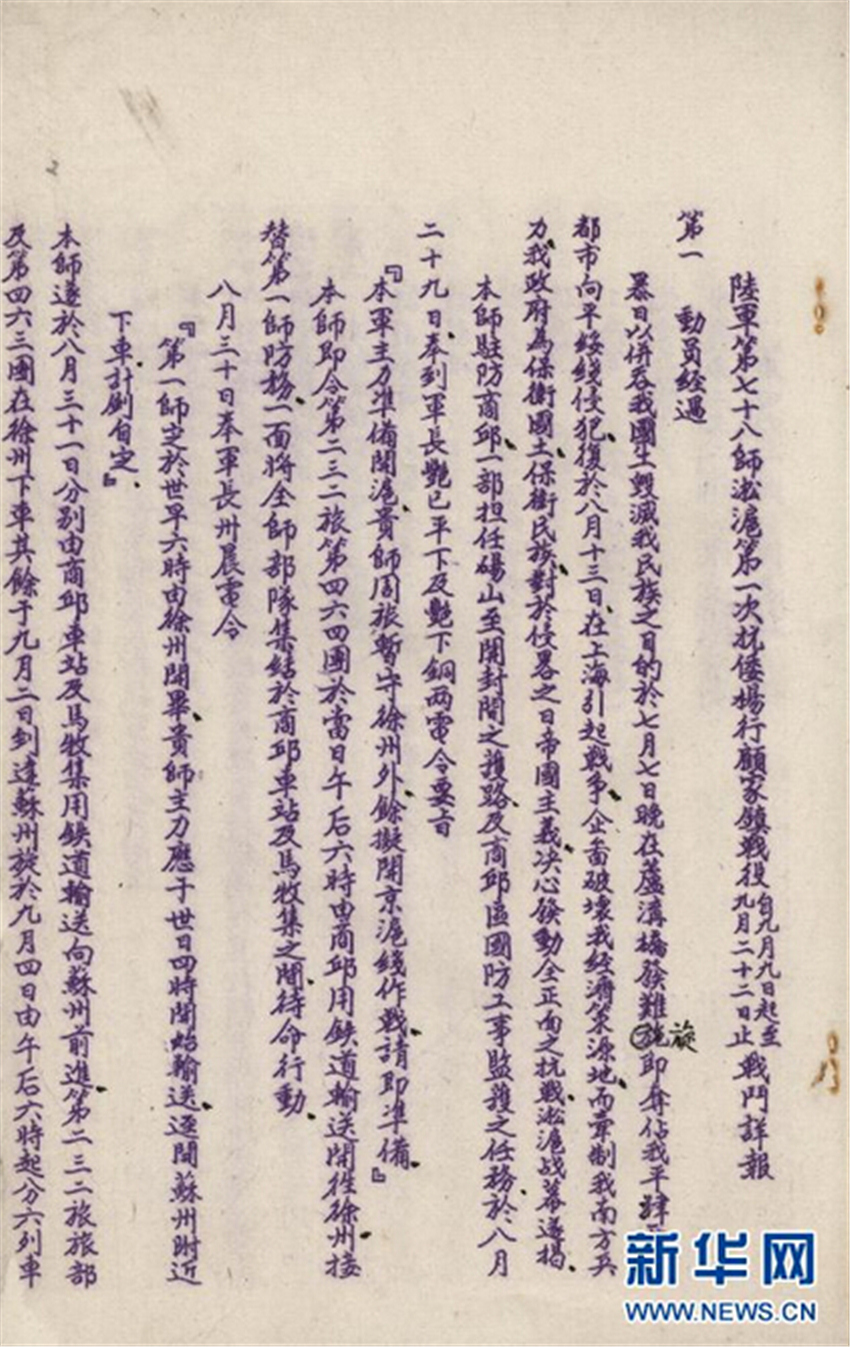 陸軍第七十八師淞滬第一次抗倭楊行顧家鎮戰役自九月九日起至九月二十二日止戰鬥詳報
第一 動員經過
暴日以併吞我國土毀滅我民族之目的於七月七日晚在蘆溝橋發難旋即奪佔我平肆
都市向平綏綫侵犯復於八月十三日在上海引起戰争企啚破壞我經濟策源地而牽制我南方兵
力我政府為保衛國土保衛民族對於侵畧之日帝國主義决心發動全正面之抗戰淞滬战幕遂揭
本師駐防商邱一部担任碭山至開封間之護路及商邱區國防工事監護之任務於八月
二十九日奉到軍長艷已平下及艷下銅两電令要旨
『本軍主力準備開滬貴師周旅暫守徐州外餘擬開京滬綫作戰請即準備』
本師即令第二三二旅第四六四團於當日午后六時由商邱用鉄道輸送開徃徐州接
替第一師防務一面將全師部隊集結於商邱車站及馬牧集之間待命行動
八月三十日奉軍長卅晨電令
『第一師定於世早六時由徐州開畢貴師主力應于世日四時開始輸送逕開蘇州附近
下車計劃自定』
本師遂於八月三十一日分别由商邱車站及馬牧集用鉄道輸送向蘇州前進第二三二旅旅部
及第四六三團在徐州下車其餘于九月二日到達蘇州旋於九月四日由午后六時起分六列車
新华网
WWW.NEWS.CN